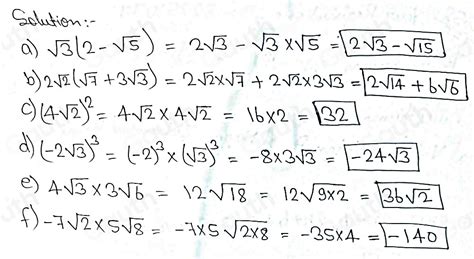 Solution:-
a) √3(2 - √5) = 2√3 - √3×√5 = 2√3 - √15
b) 2√2(√7 + 3√3) = 2√2×√7 + 2√2×3√3 = 2√14 + 6√6
c) (4√2)² = 4√2 × 4√2 = 16×2 = 32
d) (-2√3)³ = (-2)³ × (√3)³ = -8×3√3 = -24√3
e) 4√3 × 3√6 = 12√18 = 12√9×2 = 36√2
f) -7√2 × 5√8 = -7×5√2×8 = -35×4 = -140